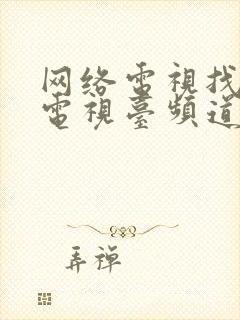 网络電視找
電視臺頻道
弄禅